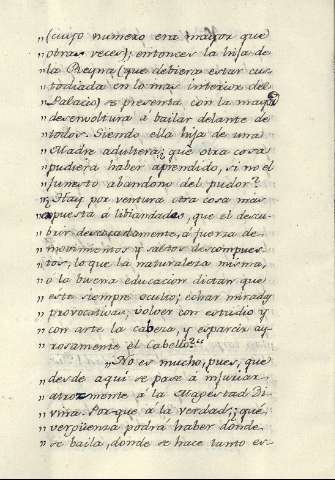 „ (cuyo numero era mayor que
„ otras veces); entonces la hija de
„ la Reyna (que debiera estar cus
„ todiada en lo mas interior del
„ Palacio) se presenta con la mayor
„ desenvoltura á bailar delante de
„ todos. Siendo ella hija de una
„ Madre adultera; ¿que otra cosa
„ pudiera haber aprendido, si no el
„ funesto abandono del pudor?
„ ¿Hay por ventura otra cosa mas
„ opuesta á liviandades, que el descu
„ brir descocadamente, á fuerza de
„ movimientos y saltos descompues
„ tos, lo que la naturaleza misma,
„ o la buena educacion dictan que
„ este siempre oculto; echar miradas
„ provocativas; volver con estudio y
„ con arte la cabeza, y esparcir ay
„ rosamente el Cabello?"
„ No es mucho, pues, que
„ desde aqui se pase á injuriar
„ atrozmente á la Magestad Di
„ vina. Porque á la verdad, ¿que
„ vergüenza podrá haber donde
„ se baila, donde se hace tanto es-